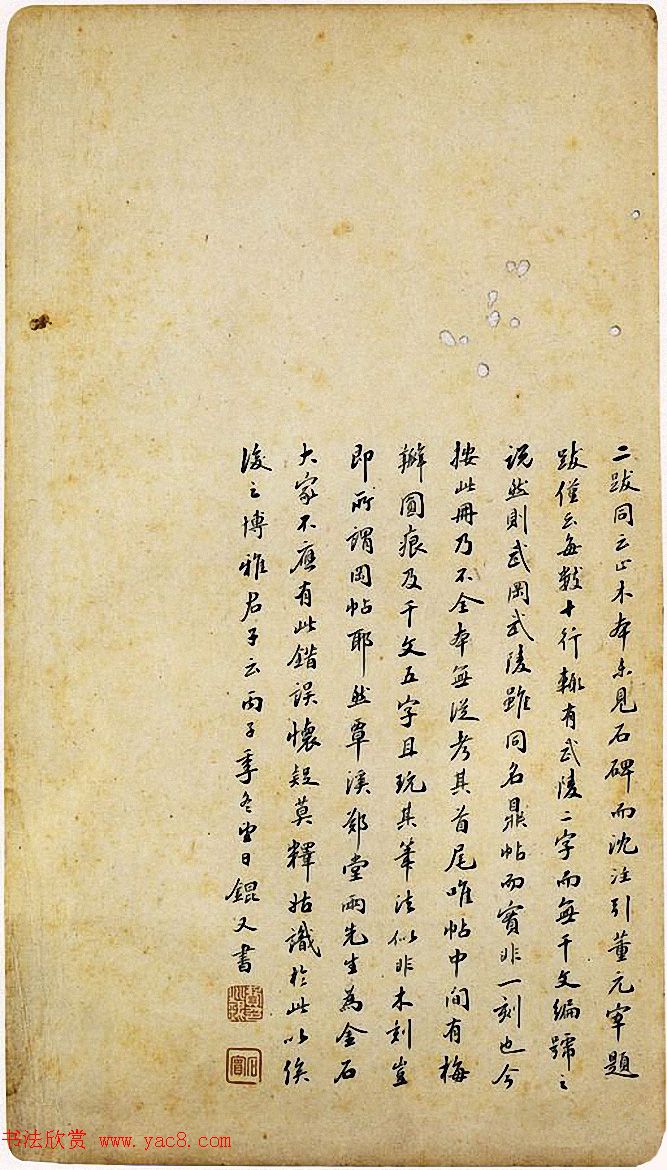 二跋同云止木本未見石碑而沈注引董元宰題
跋僅云每數十行輒有武陵二字而無千文編號之
説然則武岡武陵雖同名鼎帖而實非一刻也今
按此冊乃不全本無從考其首尾唯帖中間有梅
瓣圓痕及千文五字且玩其筆法似非木刻豈
即所謂岡帖耶然覃溪鄭堂兩先生為金石
大家不應有此錯誤懷疑莫釋姑識於此以俟
後之博雅君子云丙子季冬望日錕又書
书法欣赏 www.yac8.com